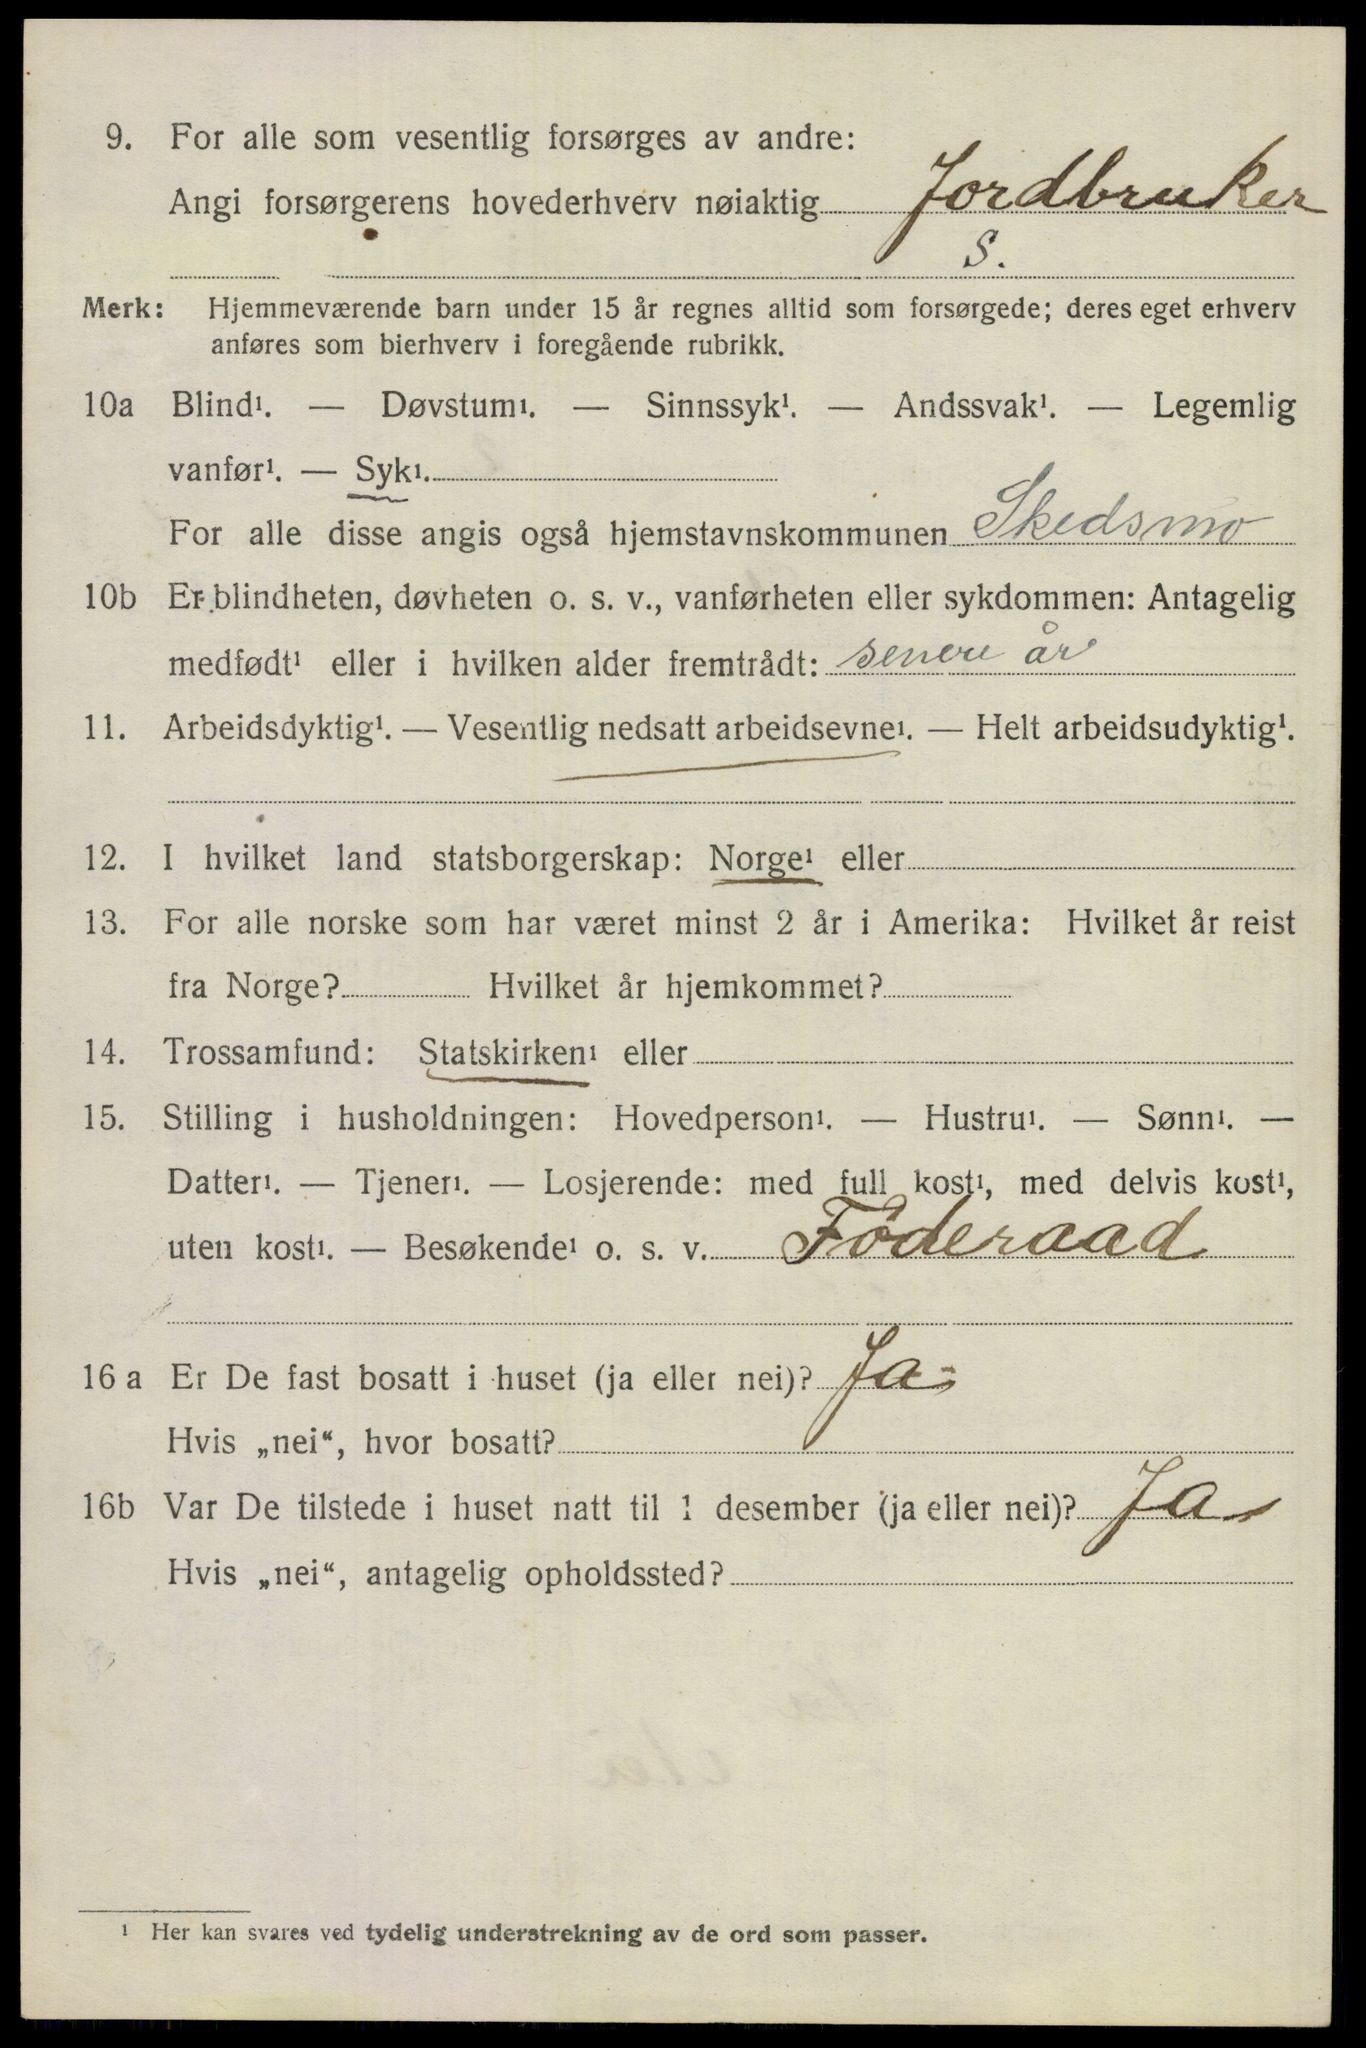 9. For alle som vesentlig forsørges av andre:
Angi forsørgerens hovederhverv nøiaktig Jordbruker
S.
Merk: Hjemmeværende barn under 15 år regnes alltid som forsørgede; deres eget erhverv
anføres som bierhverv i foregående rubrikk.
10a Blind¹. — Døvstum¹. — Sinnssyk¹. — Andssvak¹. — Legemlig
vanfør¹. — Syk¹.
For alle disse angis også hjemstavnskommunen Skedsmo
10b Er blindheten, døvheten o. s. v., vanførheten eller sykdommen: Antagelig
medfødt¹ eller i hvilken alder fremtrådt: senere år
11. Arbeidsdyktig¹. — Vesentlig nedsatt arbeidsevne¹. — Helt arbeidsudyktig¹.
12. I hvilket land statsborgerskap: Norge¹ eller
13. For alle norske som har været minst 2 år i Amerika: Hvilket år reist
fra Norge? Hvilket år hjemkommet?
14. Trossamfund: Statskirken¹ eller
15. Stilling i husholdningen: Hovedperson¹. — Hustru¹. — Sønn¹. —
Datter¹. — Tjener¹. — Losjerende: med full kost¹, med delvis kost¹,
uten kost¹. — Besøkende¹ o. s. v. Föderaad
16 a Er De fast bosatt i huset (ja eller nei)? Ja
Hvis „nei“, hvor bosatt?
16b Var De tilstede i huset natt til 1 desember (ja eller nei)? Ja
Hvis „nei“, antagelig opholdssted?
¹ Her kan svares ved tydelig understrekning av de ord som passer.